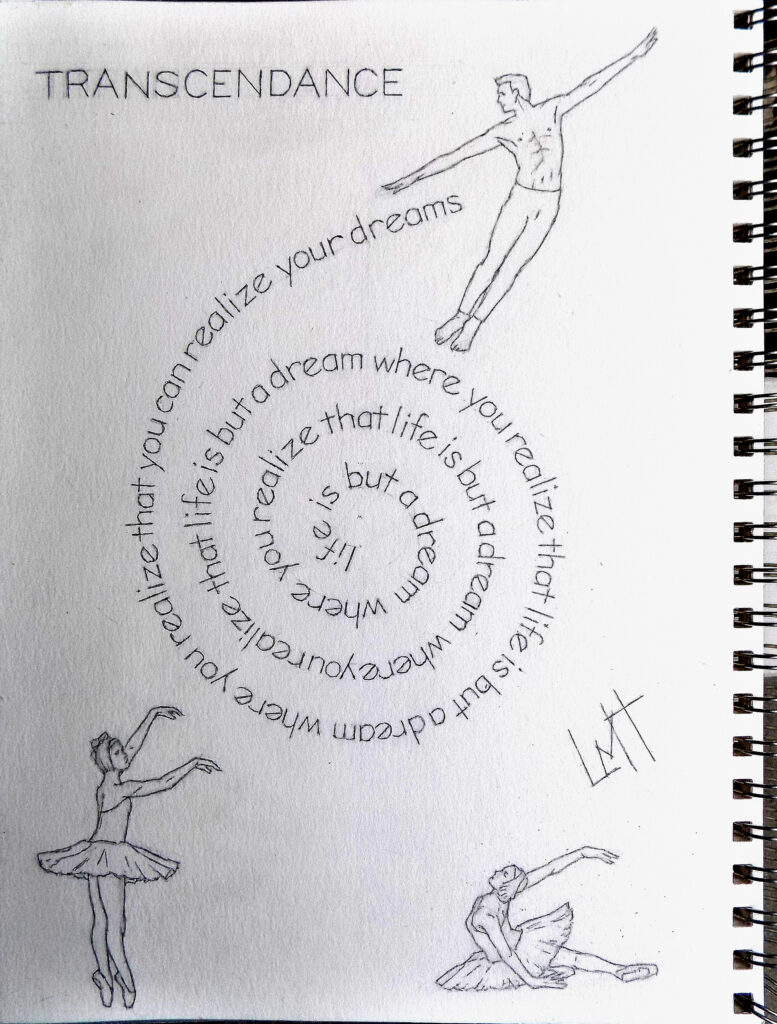 TRANSCENDANCE
life is but a dream where you realize that life is but a dream where you realize that life is but a dream where you realize that life is but a dream where you realize that you can realize your dreams
LMT